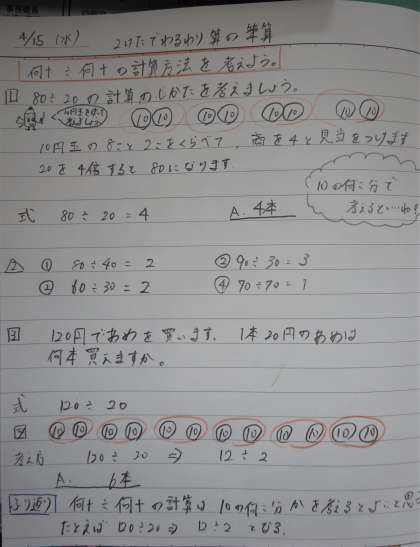 4/15 (水) 2けたでわるわり算の筆算
何十÷何十の計算方法を考えよう。
1 80÷20の計算のしかたを考えましょう。
10 10 10 10 10 10 10 10
10円玉の8こと2こをくらべて、商を4と見当をつけます
20を4倍すると80になります
10の何こ分で
考えると…わ
式 80÷20=4 A. 4本
2 ① 80÷40=2 ② 90÷30=3
③ 60÷30=2 ④ 70÷70=1
3 120円であめを買います。1本20円のあめは
何本買えますか。
式 120÷20
図 10 10 10 10 10 10 10 10 10 10 10 10
考え方 120÷20 ⇒ 12÷2
A. 6本
ふり返り 何十÷何十の計算は10の何こ分かを考えるとよいと思
たとえば 120÷20⇒12÷2となる。